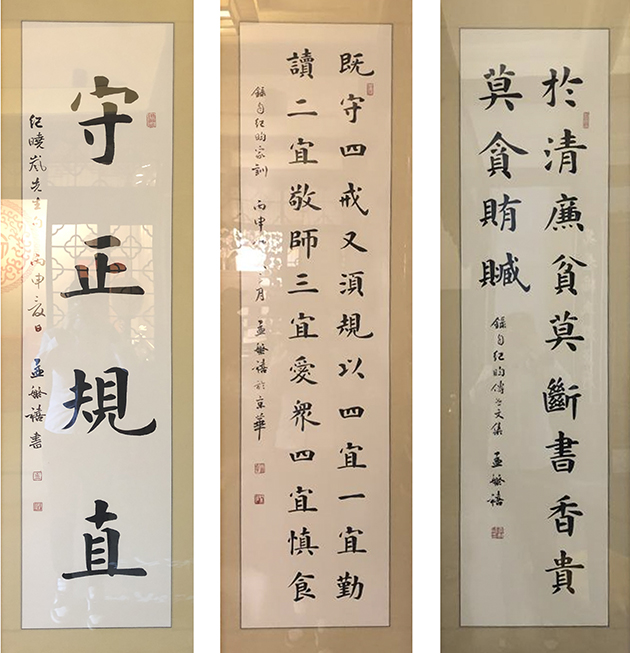 守正規直
纪曉嵐先生 丙申夏日 孟繁禧書
既守四戒又須規以四宜一宜勤
讀二宜敬師三宜愛衆四宜慎食
錄自纪昀家訓 丙申 月 孟繁禧於京華
於清廉貧莫斷書香貴
莫貪賄贓
錄自纪昀傳世文集 孟繁禧